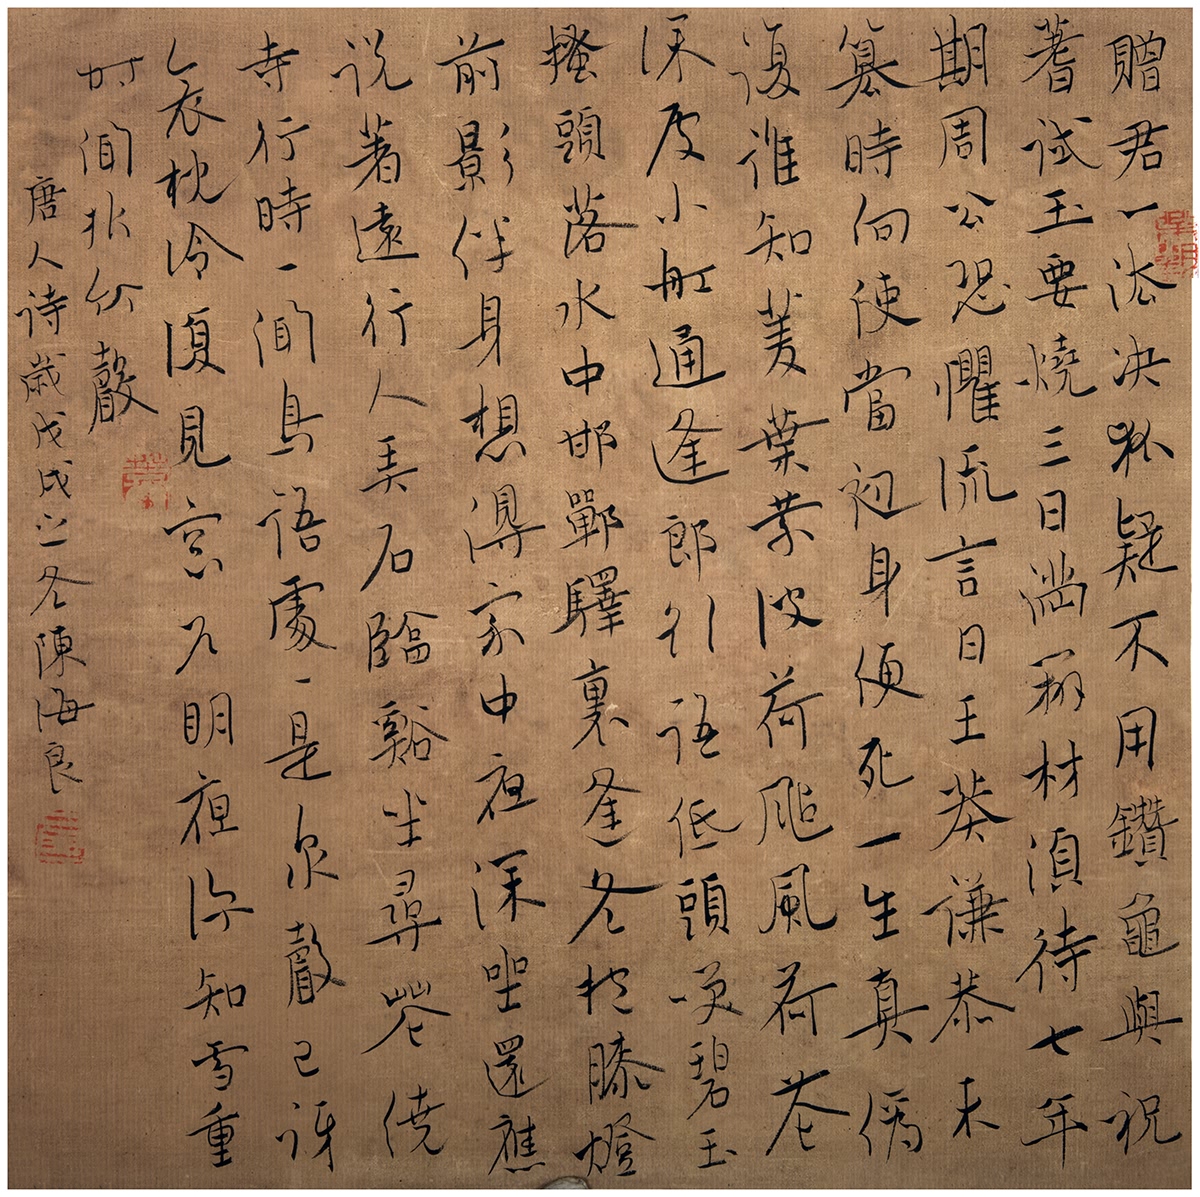 贈君一法決狐疑不用鑽龜與祝
蓍試玉要燒三日滿辨材須待七年
期周公恐懼流言日王莽謙恭未
篡時向使當初身便死一生真偽
復誰知菱葉縈波荷颭風荷花
深處小船通逢郎欲語低頭笑碧玉
搔頭落水中邯鄲驛裏逢冬抱膝燈
前影伴身想得家中夜深坐還應
说著遠行人弄石臨谿坐尋花繞
寺行時々聞鳥語處々是泉聲已訝
衾枕冷復見窗戶明夜深知雪重
時聞折竹聲
唐人詩歲戊戌之冬陳海良